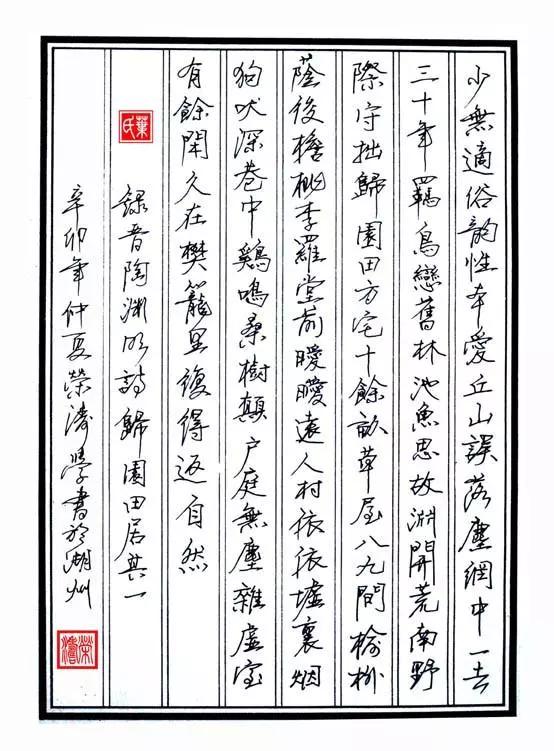 少無適俗韵性本愛丘山誤落塵網中一去
三十年羈鳥戀舊林池魚思故淵開荒南野
際守拙歸園田方宅十餘畝草屋八九間榆柳
蔭後檐桃李羅堂前曖曖遠人村依依墟裏烟
狗吠深巷中鷄鳴桑樹顛户庭無塵雜虛室
有餘閑久在樊籠里復得返自然
葉氏
錄昔陶淵明詩歸園田居其一
辛卯年仲夏榮濤學書於湖州
榮濤